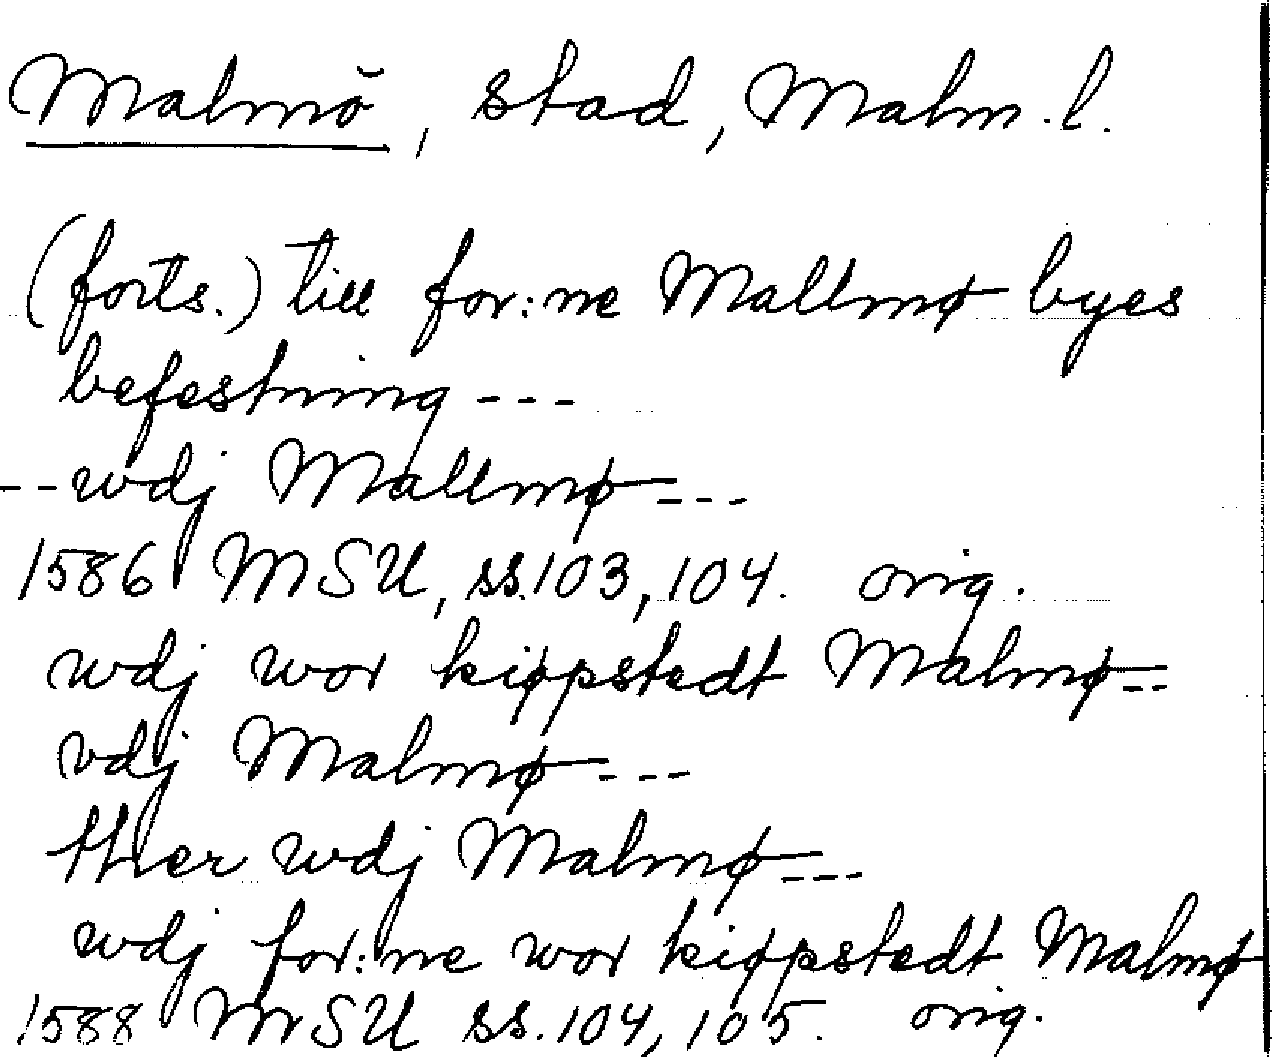 Malmö, stad, Malm. l.
(forts.) till for:ne Mallmø byes
befestning ---
-- wdj Mallmø ---
1586 MSU, ss. 103, 104. orig.
wdj wor kiøpstedt Malmø --
vdj Malmø ---
ther wdj Malmø ---
wdj for:ne wor kiøpstedt Malmø
1588 MSU ss. 104, 105. orig.